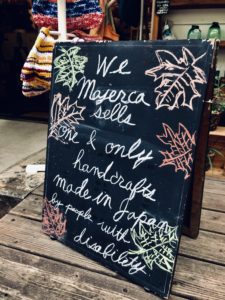 We
Majerca
sells
one & only
handcrafts
made in Japan
by people with
disability